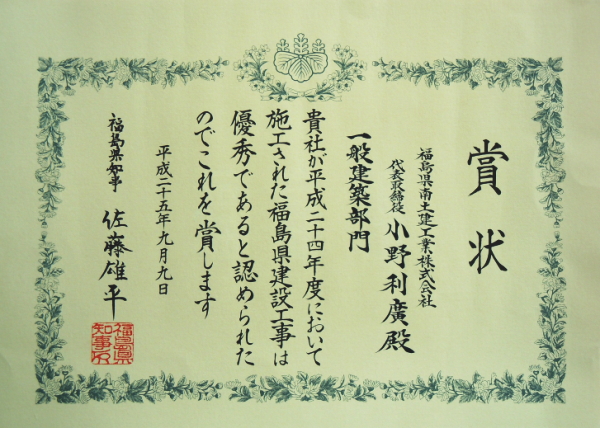 賞状
福島県南土建工業株式会社
代表取締役 小野利廣殿
一般建築部門
貴社が平成二十四年度において
施工された福島県建設工事は
優秀であると認められた
のでこれを賞します
平成二十五年九月九日
福島県知事 佐藤雄平
福島県
知事印